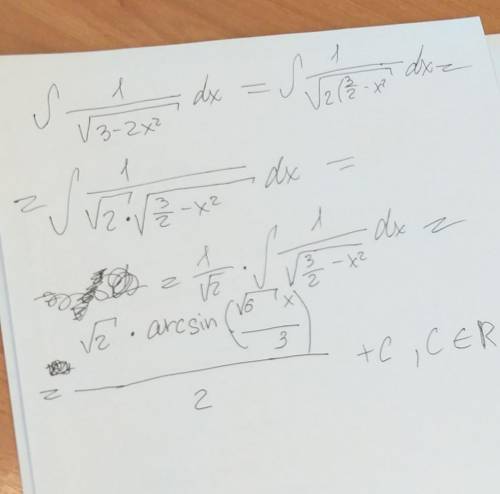 ∫ 1/√(3-2x²) dx = ∫ 1/√(2(3/2-x²) dx =
= ∫ 1/(√2·√(3/2-x²)) dx =
= 1/√2 · ∫ 1/√(3/2-x²) dx =
= (√2 · arcsin(√6 x/3))/2 + C, C∈R